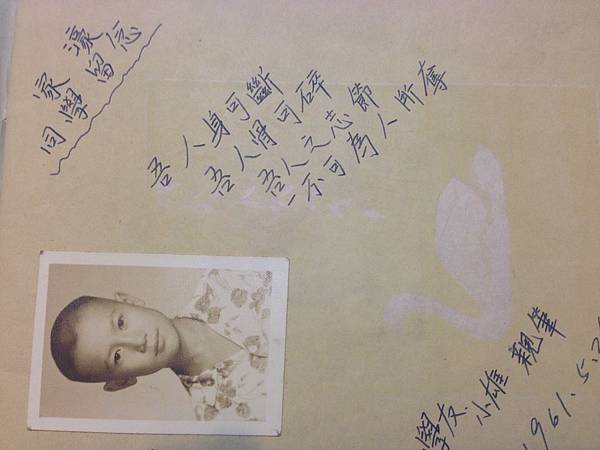 家濠
同學留念
吾人身可斷
吾人骨可碎
吾人之志節
不可為人所奪
學友 小雄 親筆
1961.5.2